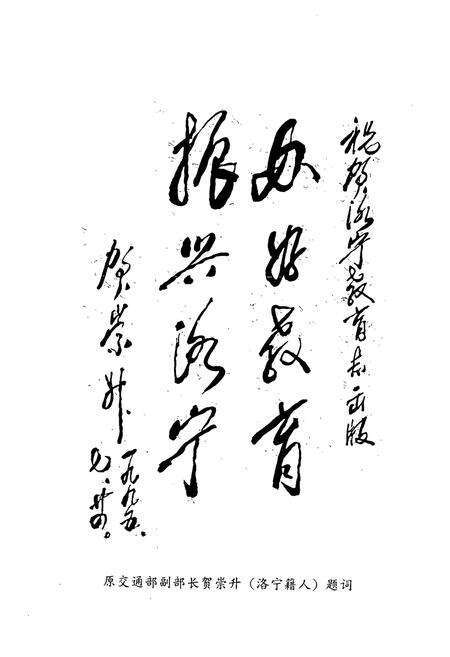 祝贺洛宁教育志出版
办好教育
振兴洛宁
贺崇升
一九九五、
七、廿四。
原交通部副部长贺崇升（洛宁籍人）题词